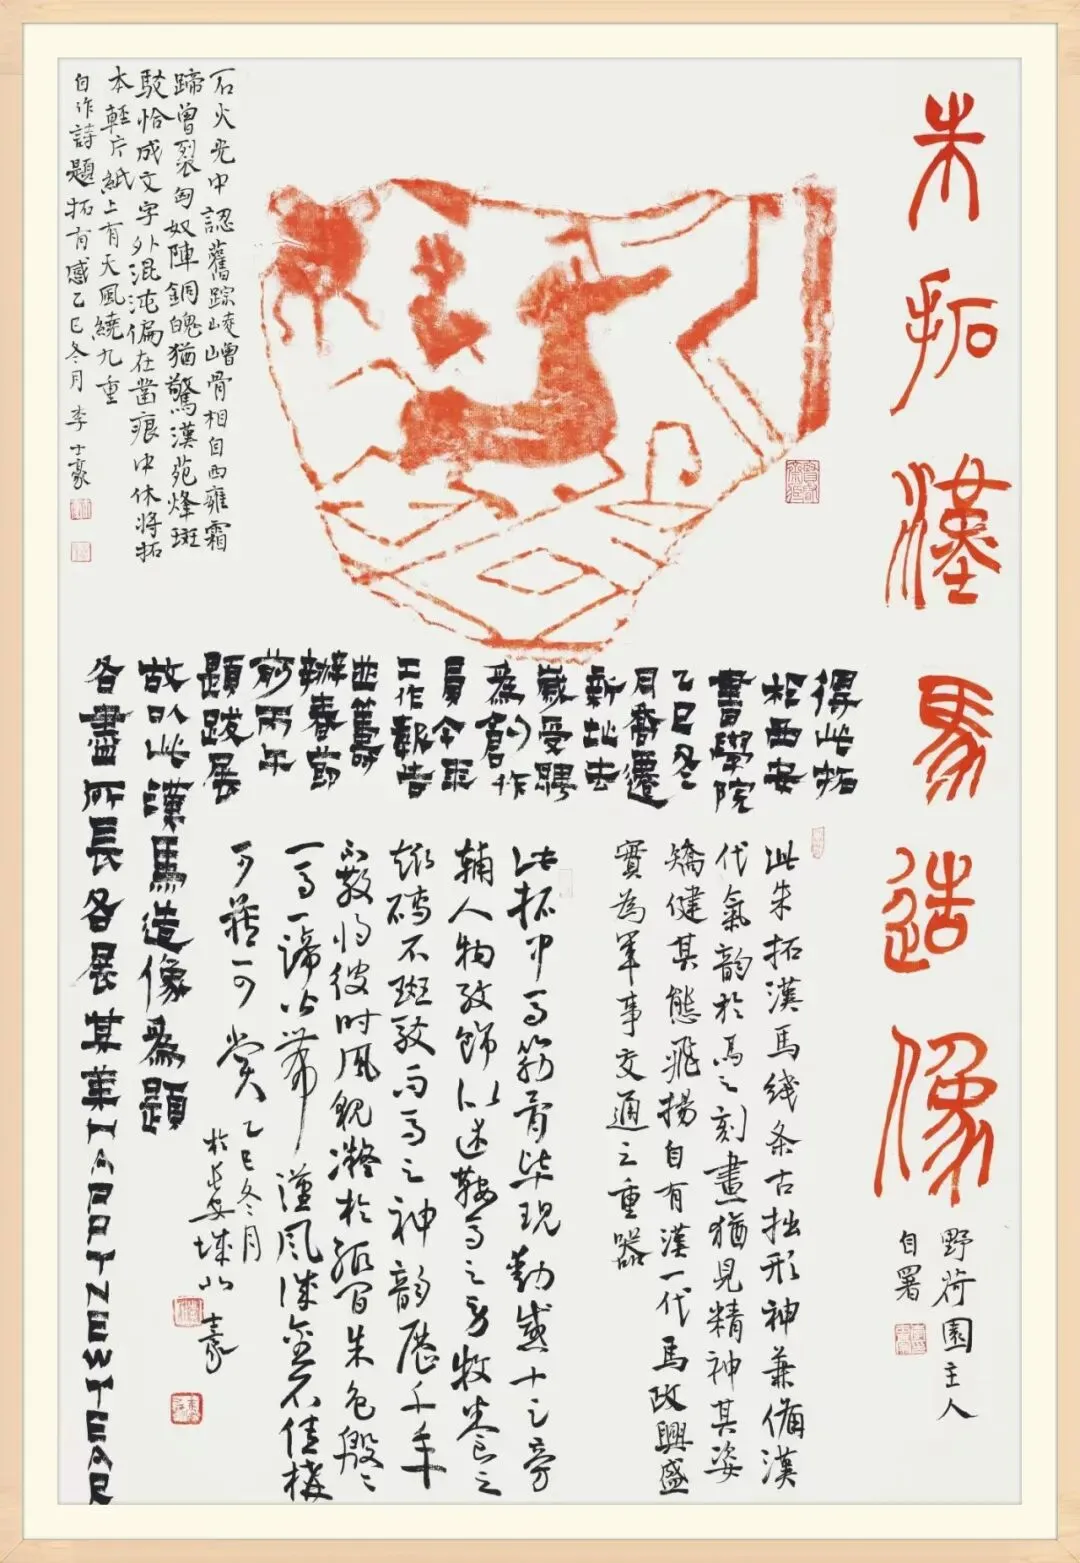 朱拓漢馬造像
野荷園主人
自署
石火光中認舊踪崚嶒骨相自西雍霜
蹄曾裂匈奴陣銅魄猶驚漢苑烽斑
駁恰成文字外混沌偏在凿痕中休将拓
本輕片紙上有天風繞九重
自作詩題拓有感乙巳冬月李士豪
得此拓
於西安
書學院
乙巳冬
月喬遷
新址去
歲受聘
為創作
員今取
工作報告
曲舊
辦春節
前丙午
題跋展
故以此漢馬造像為題
各盡所長各展其業HAPPYNEWYEAR
此朱拓漢馬线条古拙形神兼備漢
代氣韵於馬之刻畫猶見精神其姿
矯健其態飛揚自有漢一代馬政興盛
實為軍事交通之重器
此拓中马筋骨毕現動感十足旁
輔人物紋飾以述鞍马之劳牧養之
斑驳而马之神韵歷千年
不散将彼時風貌凝於紙間朱色殷殷
一马一蹄皆帶漢風誠金石佳構
可藏可賞
乙巳冬月
於長安城北
士豪